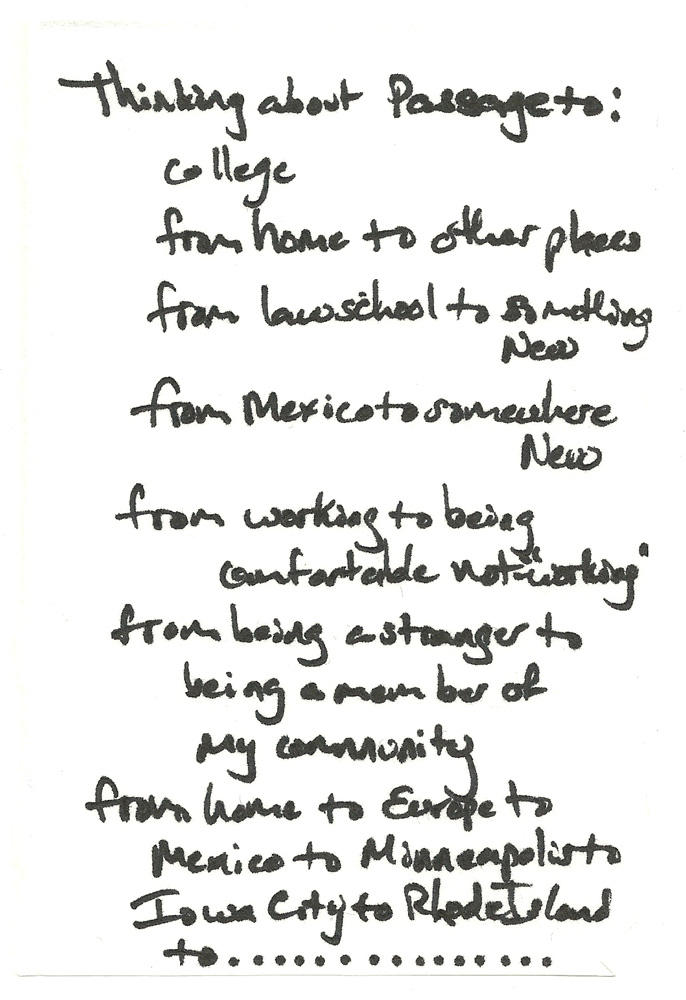 Thinking about Passage to:
college
from home to other places
from law school to something
New
from Mexico to somewhere
New
from working to being
comfortable not "working"
from being a stranger to
being a member of
my community
from home to Europe to
Mexico to Minneapolis to
Iowa City to Rhode Island
to...............